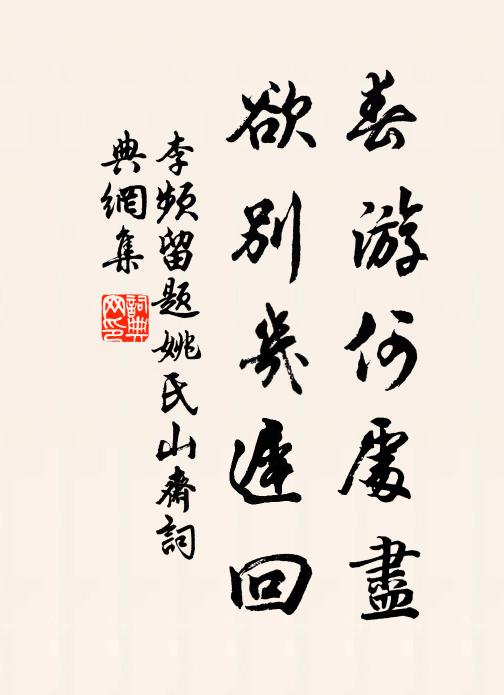 春游何處盡
欲別幾遲回
李頻留題姚氏山齋詞
典網集
詞典
网印